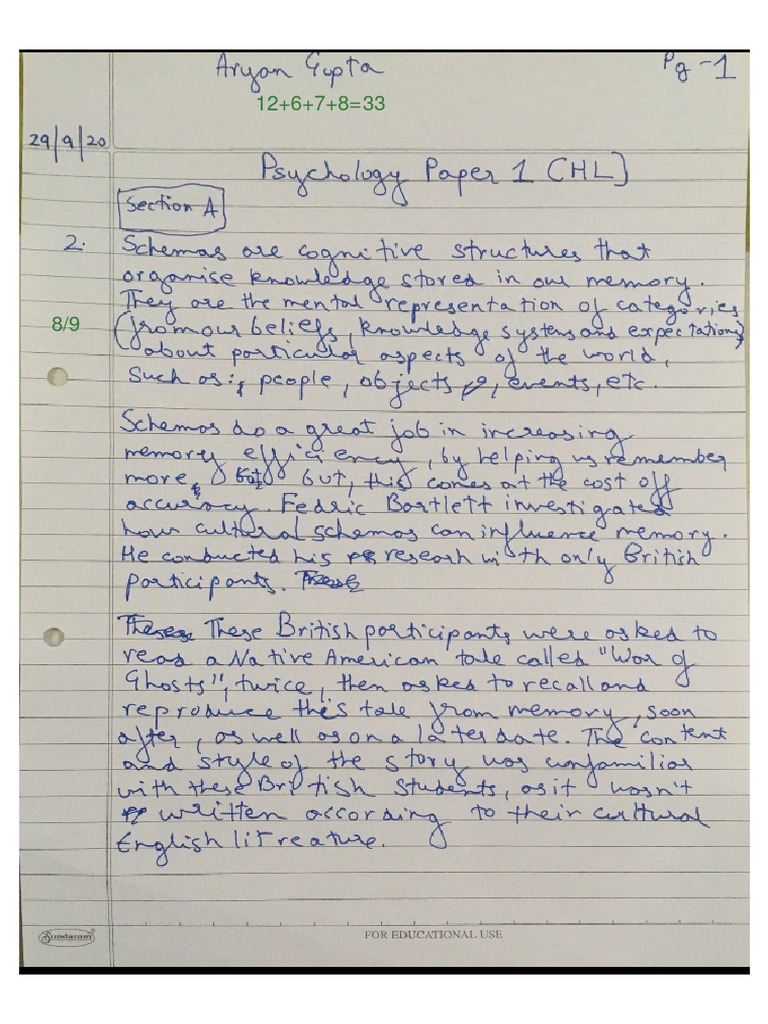 Aryan Gupta
Pg -1
12+6+7+8=33
29/9/20
Psychology Paper 1 (HL]
Section A
2. Schemas are cognitive structures that
organise knowledge stored in our memory.
They are the mental representation of categories
8/9
(from our beliefs, knowledge systems and expectations)
about particular aspects of the world,
Such as: people, objects, events, etc.
Schemas do a great job in increasing
memory efficiency, by helping us remember
more, but, this comes at the cost off
accuracy. Fedric Bartlett investigated
how cultural schemas can influence memory.
He conducted his research with only British
participants. These
These These British participants were asked to
read a Native American tale called "War of
Ghosts", twice, then asked to recall and
reproduce this tale from memory, soon
after, as well as on a later date. The content
and style of the story was unfamiliar
with these British Students, as it wasn't
written according to their cultural
English litreature.
Sundaram
FOR EDUCATIONAL USE